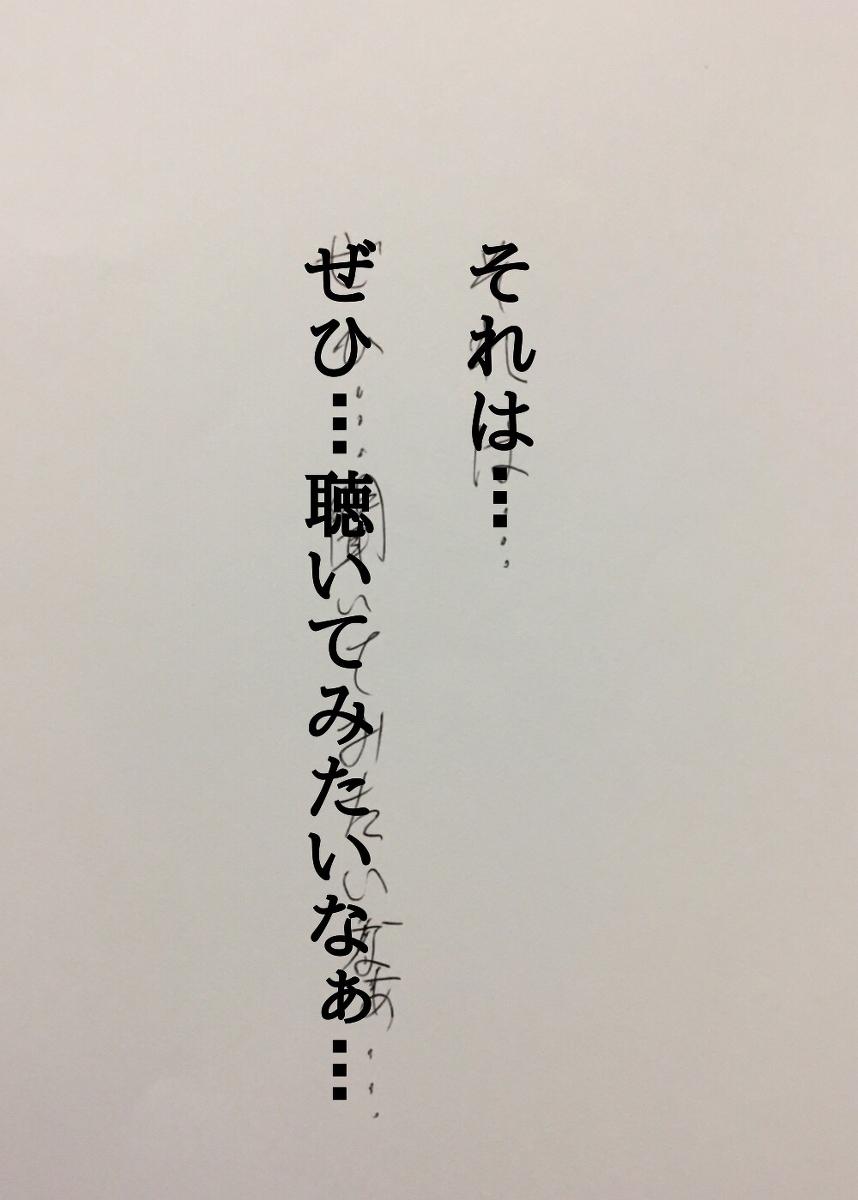 それは…
ぜひ…聴いてみたいなぁ…